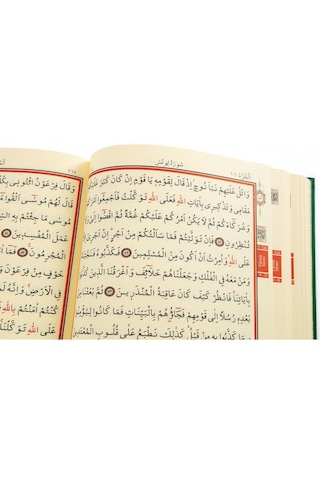 اَلْجُزْءُ ١١
سُورَةُ يُونُسَ
وَاتْلُ عَلَيْهِمْ نَبَاَ نُوحٍ اِذْ قَالَ لِقَوْمِهٖ يَا قَوْمِ اِنْ كَانَ كَبُرَ عَلَيْكُمْ
مَقَامِى وَتَذْكِيرِى بِاٰيَاتِ اللّٰهِ فَعَلَى اللّٰهِ تَوَكَّلْتُ فَاَجْمِعُوا
اَمْرَكُمْ وَشُرَكَاءَكُمْ ثُمَّ لَا يَكُنْ اَمْرُكُمْ عَلَيْكُمْ غُمَّةً ثُمَّ اقْضُوا اِلَىَّ وَلَا
تُنْظِرُونِ فَاِنْ تَوَلَّيْتُمْ فَمَا سَاَلْتُكُمْ مِنْ اَجْرٍ اِنْ اَجْرِىَ اِلَّا
عَلَى اللّٰهِ وَاُمِرْتُ اَنْ اَكُونَ مِنَ الْمُسْلِمِينَ فَكَذَّبُوهُ فَنَجَّيْنَاهُ
وَمَنْ مَعَهُ فِى الْفُلْكِ وَجَعَلْنَاهُمْ خَلَائِفَ وَاَغْرَقْنَا الَّذِينَ كَذَّبُوا
بِاٰيَاتِنَا فَانْظُرْ كَيْفَ كَانَ عَاقِبَةُ الْمُنْذَرِينَ ثُمَّ بَعَثْنَا مِنْ
بَعْدِهٖ رُسُلًا اِلٰى قَوْمِهِمْ فَجَاؤُهُمْ بِالْبَيِّنَاتِ فَمَا كَانُوا لِيُؤْمِنُوا
بِمَا كَذَّبُوا بِهٖ مِنْ قَبْلُ كَذٰلِكَ نَطْبَعُ عَلٰى قُلُوبِ
وَقَالَ فِرْعَوْنُ ائْتُونِى بِكُلِّ
قَالَ لَهُمْ مُوسٰى اَلْقُوا
مُوسٰى مَا جِئْتُمْ بِهِ
عَمَلَ الْمُفْسِدِينَ
الْمُجْرِمُونَ
خَوْفٍ مِنْ فِرْعَوْنَ
فِى الْاَرْضِ وَاِنَّهُ
كُنْتُمْ اٰمَنْتُمْ بِاللّٰهِ
عَلَى اللّٰهِ تَوَكَّلْنَا